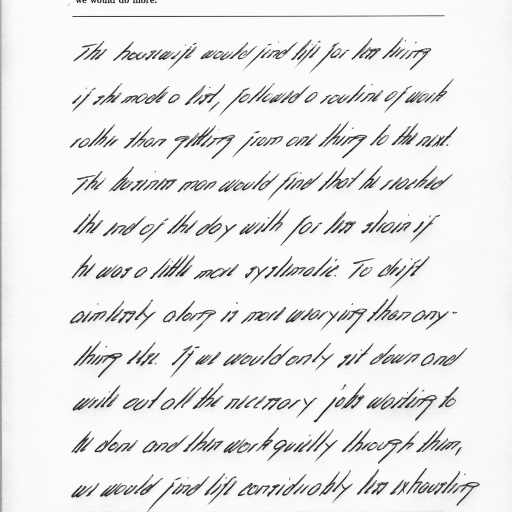 we would do more.
The housewife would find life far less tiring
if she made a list, followed a routine of work
rather than getting from one thing to the next.
The business man would find that he reached
the end of the day with far less strain if
he was a little more systematic. To drift
aimlessly along is more wearying than any-
thing else. If we would only sit down and
write out all the necessary jobs waiting to
be done and then work quietly through them,
we would find life considerably less exhausting